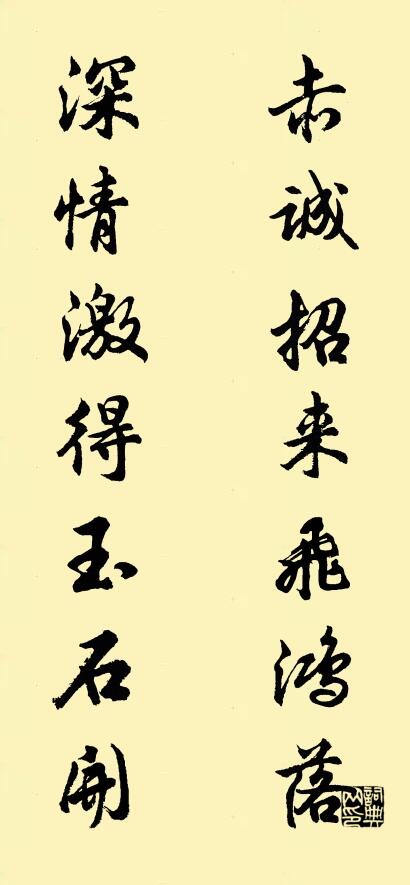 赤诚招来飞鸿落
深情激得玉石開